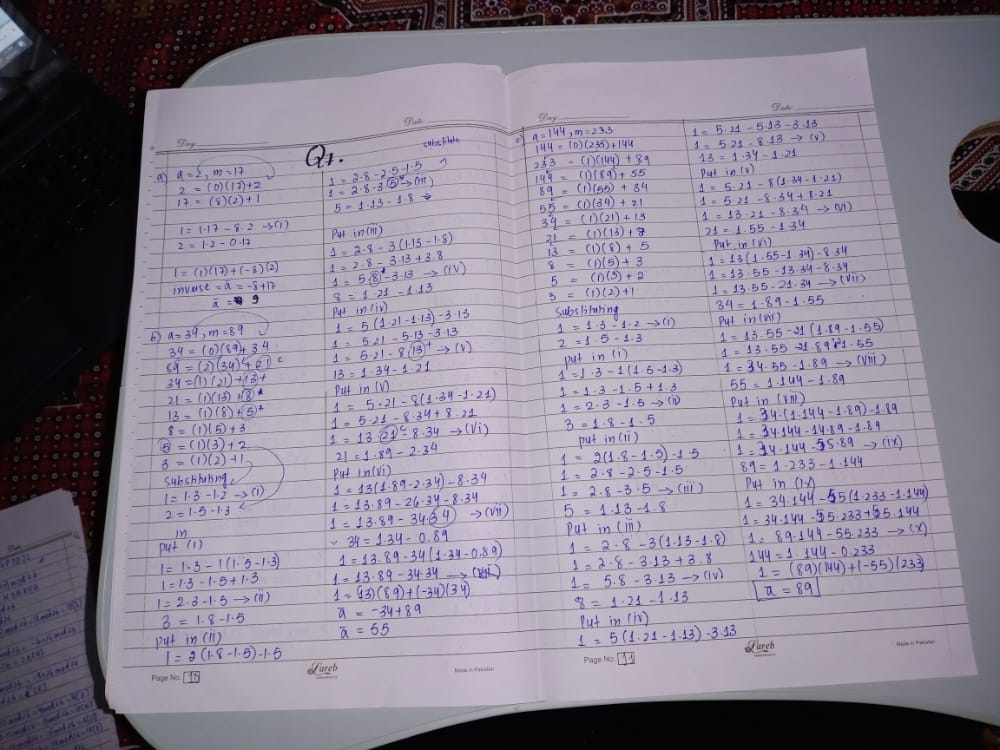 Day.
Date.
Q1.
a) a=2, m=17
2 = (0)(17)+2
17 = (8)(2)+1
1=1·17-8·2 →(i)
2=1·2-0·17
1=(1)(17)+(-8)(2)
inverse = ā = -8+17
ā = 9
b) a=34, m=89
34=(0)(89)+34
89=(2)(34)+21
34=(1)(21)+13
21=(1)(13)+8
13=(1)(8)+5
8=(1)(5)+3
5=(1)(3)+2
3=(1)(2)+1
Substituting
1=1·3-1·2 →(i)
2=1·5-1·3
in
put (i)
1=1·3-1(1·5-1·3)
1=1·3-1·5+1·3
1=2·3-1·5 →(ii)
3=1·8-1·5
Put in (ii)
1=2(1·8-1·5)-1·5
Page No. 10
substitute
1=2·8-2·5-1·5
1=2·8-3·5 →(iii)
5=1·13-1·8
Put in (iii)
1=2·8-3(1·13-1·8)
1=2·8-3·13+3·8
1=5·8-3·13 →(iv)
8=1·21-1·13
Put in (iv)
1=5(1·21-1·13)-3·13
1=5·21-5·13-3·13
1=5·21-8·13 →(v)
13=1·34-1·21
Put in (v)
1=5·21-8(1·34-1·21)
1=5·21-8·34+8·21
1=13·21-8·34 →(vi)
21=1·89-2·34
Put in (vi)
1=13(1·89-2·34)-8·34
1=13·89-26·34-8·34
1=13·89-34·34 →(vii)
34=1·34-0·89
1=13·89-34(1·34-0·89)
1=13·89-34·34
1=(13)(89)+(-34)(34)
ā=-34+89
ā=55
Lareb
Made in Pakistan
Day.
Date.
c) a=144, m=233
144=(0)(233)+144
233=(1)(144)+89
144=(1)(89)+55
89=(1)(55)+34
55=(1)(34)+21
34=(1)(21)+13
21=(1)(13)+8
13=(1)(8)+5
8=(1)(5)+3
5=(1)(3)+2
3=(1)(2)+1
Substituting
1=1·3-1·2 →(i)
2=1·5-1·3
put in (i)
1=1·3-1(1·5-1·3)
1=1·3-1·5+1·3
1=2·3-1·5 →(ii)
3=1·8-1·5
put in (ii)
1=2(1·8-1·5)-1·5
1=2·8-2·5-1·5
1=2·8-3·5 →(iii)
5=1·13-1·8
Put in (iii)
1=2·8-3(1·13-1·8)
1=2·8-3·13+3·8
1=5·8-3·13 →(iv)
8=1·21-1·13
Put in (iv)
1=5(1·21-1·13)-3·13
Page No. 11
1=5·21-5·13-3·13
1=5·21-8·13 →(v)
13=1·34-1·21
Put in (v)
1=5·21-8(1·34-1·21)
1=5·21-8·34+8·21
1=13·21-8·34 →(vi)
21=1·55-1·34
Put in (vi)
1=13(1·55-1·34)-8·34
1=13·55-13·34-8·34
1=13·55-21·34 →(vii)
34=1·89-1·55
Put in (vii)
1=13·55-21(1·89-1·55)
1=13·55-21·89+21·55
1=34·55-21·89 →(viii)
55=1·144-1·89
Put in (viii)
1=34·(1·144-1·89)-21·89
1=34·144-34·89-21·89
1=34·144-55·89 →(ix)
89=1·233-1·144
Put in (ix)
1=34·144-55(1·233-1·144)
1=34·144-55·233+55·144
1=89·144-55·233 →(x)
144=1·144-0·233
1=(89)(144)+(-55)(233)
ā=89
Lareb
Made in Pakistan